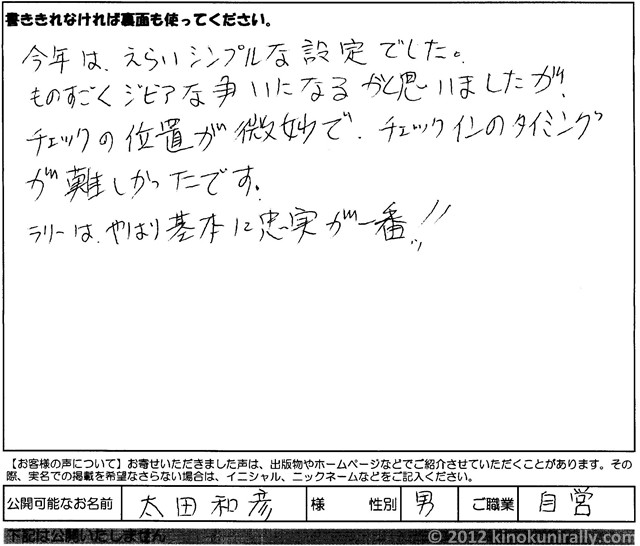 書ききれなければ裏面も使ってください。
今年は、えらいシンプルな設定でした。
ものすごくシビアな争いになるかと思いましたが、
チェックの位置が微妙で、チェックインのタイミング
が難しかったです。
ラリーは、やはり基本に忠実が一番!!
【お客様の声について】お寄せいただきました声は、出版物やホームページなどでご紹介させていただくことがあります。その
際、実名での掲載を希望なさらない場合は、イニシャル、ニックネームなどをご記入ください。
公開可能なお名前 太田和彦 様 性別 男 ご職業 自営
下記は公開いたしません
© 2012 kinokunirally.com